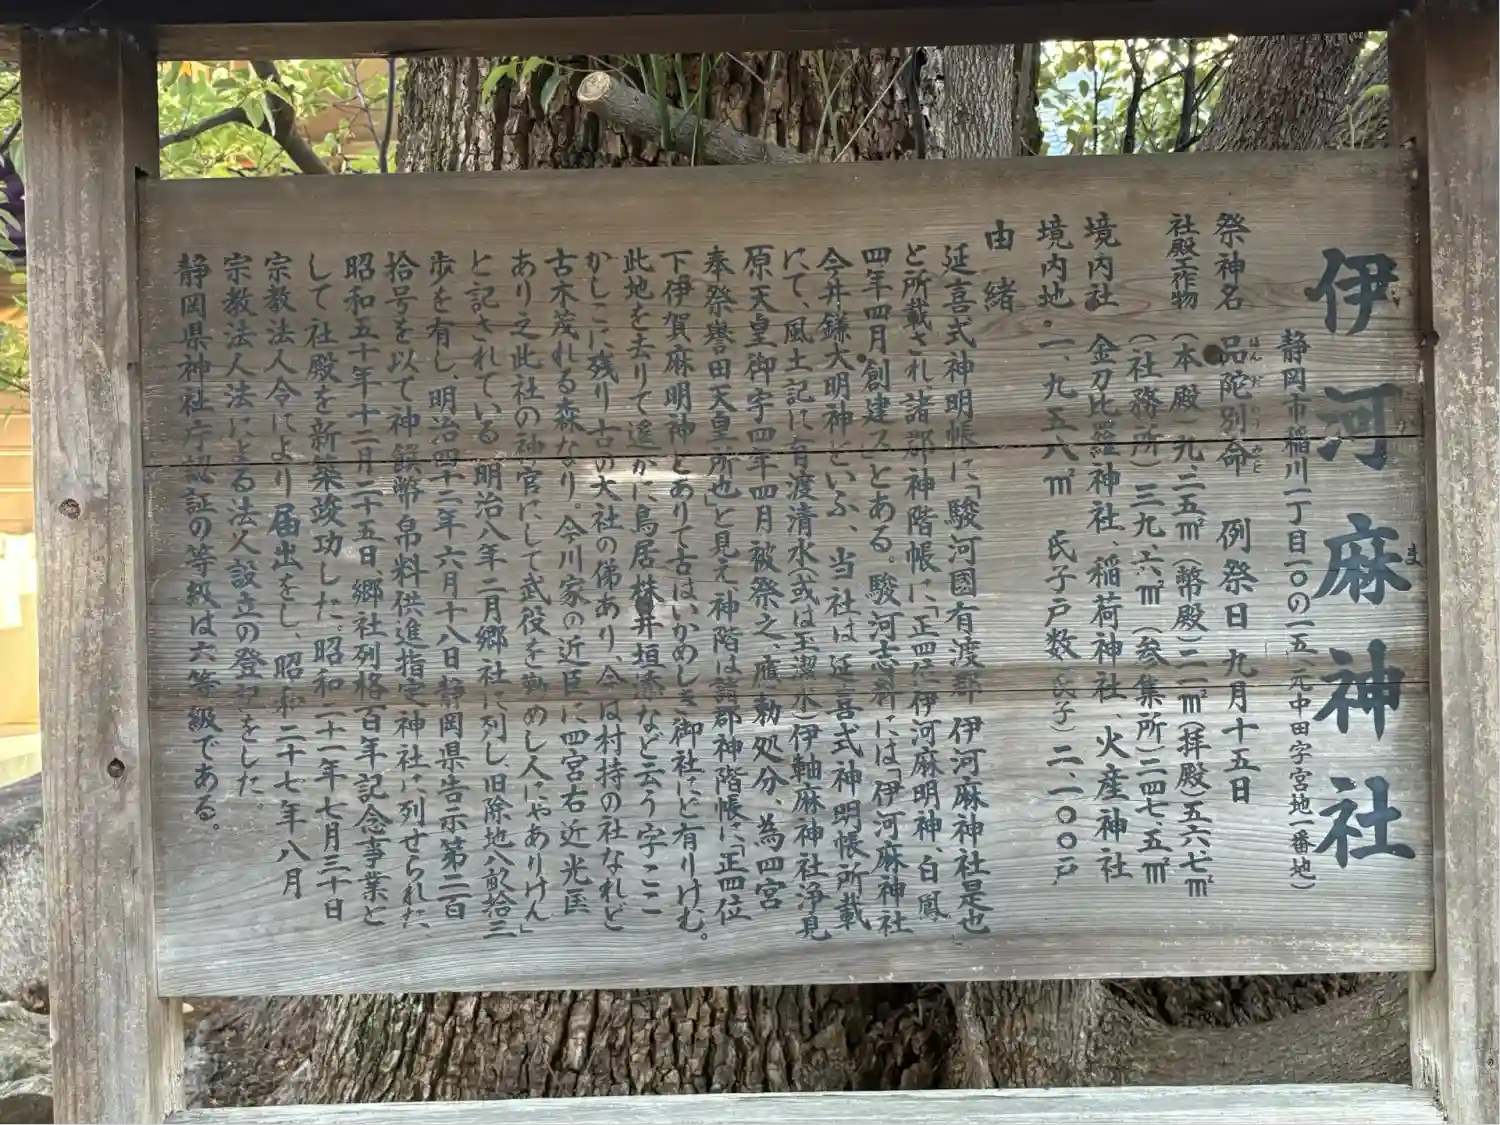 伊河麻神社
静岡市稲川一丁目一〇の一五(元中田字宮地一番地)
祭神名 品陀別命 例祭日 九月十五日
社殿工作物 (本殿)九、二五㎡(幣殿)二一㎡(拝殿)五六七㎡
(社務所)三九、六㎡(参集所)二四七、五㎡
境内社 金刀比羅神社、稲荷神社、火産神社
境内地 一、九五八㎡ 氏子戸数(氏子)二、一〇〇戸
由緒
延喜式神明帳に「駿河國有渡郡 伊河麻神社是也」
と所載され諸郡神階帳に「正四位伊河麻明神、白鳳
四年四月創建スとある。駿河志料には「伊河麻神社
今井鎌大明神といふ、当社は延喜式神明帳所載
にて、風土記に有渡清水(或は玉潔水)伊軸麻神社浄見
原天皇御宇四年四月被祭之、應勅処分、為四宮
奉祭誉田天皇所也」と見え神階は諸郡神階帳に「正四位
下伊賀麻明神とありて古はいかめしき御社にど有りけむ。
此地を去りて遙かに鳥居株井垣添など云う字ここ
かしこに残り古の大社の俤あり、今は村持の社なれど
古木茂れる森なり。今川家の近臣に四宮右近光匡
あり之此社の神官にして武役を勤めし人にやありけん」
と記されている。明治八年二月郷社に列し、旧除地八畝拾三
歩を有し、明治四十二年六月十八日静岡県告示第二百
拾号を以て神饌幣帛料供進指定神社に列せられた、
昭和五十年十二月二十五日郷社列格百年記念事業と
して社殿を新築竣功した、昭和二十一年七月三十日
宗教法人令により届出をし、昭和二十七年八月
宗教法人法による法人設立の登記をした。
静岡県神社庁認証の等級は六等級である。